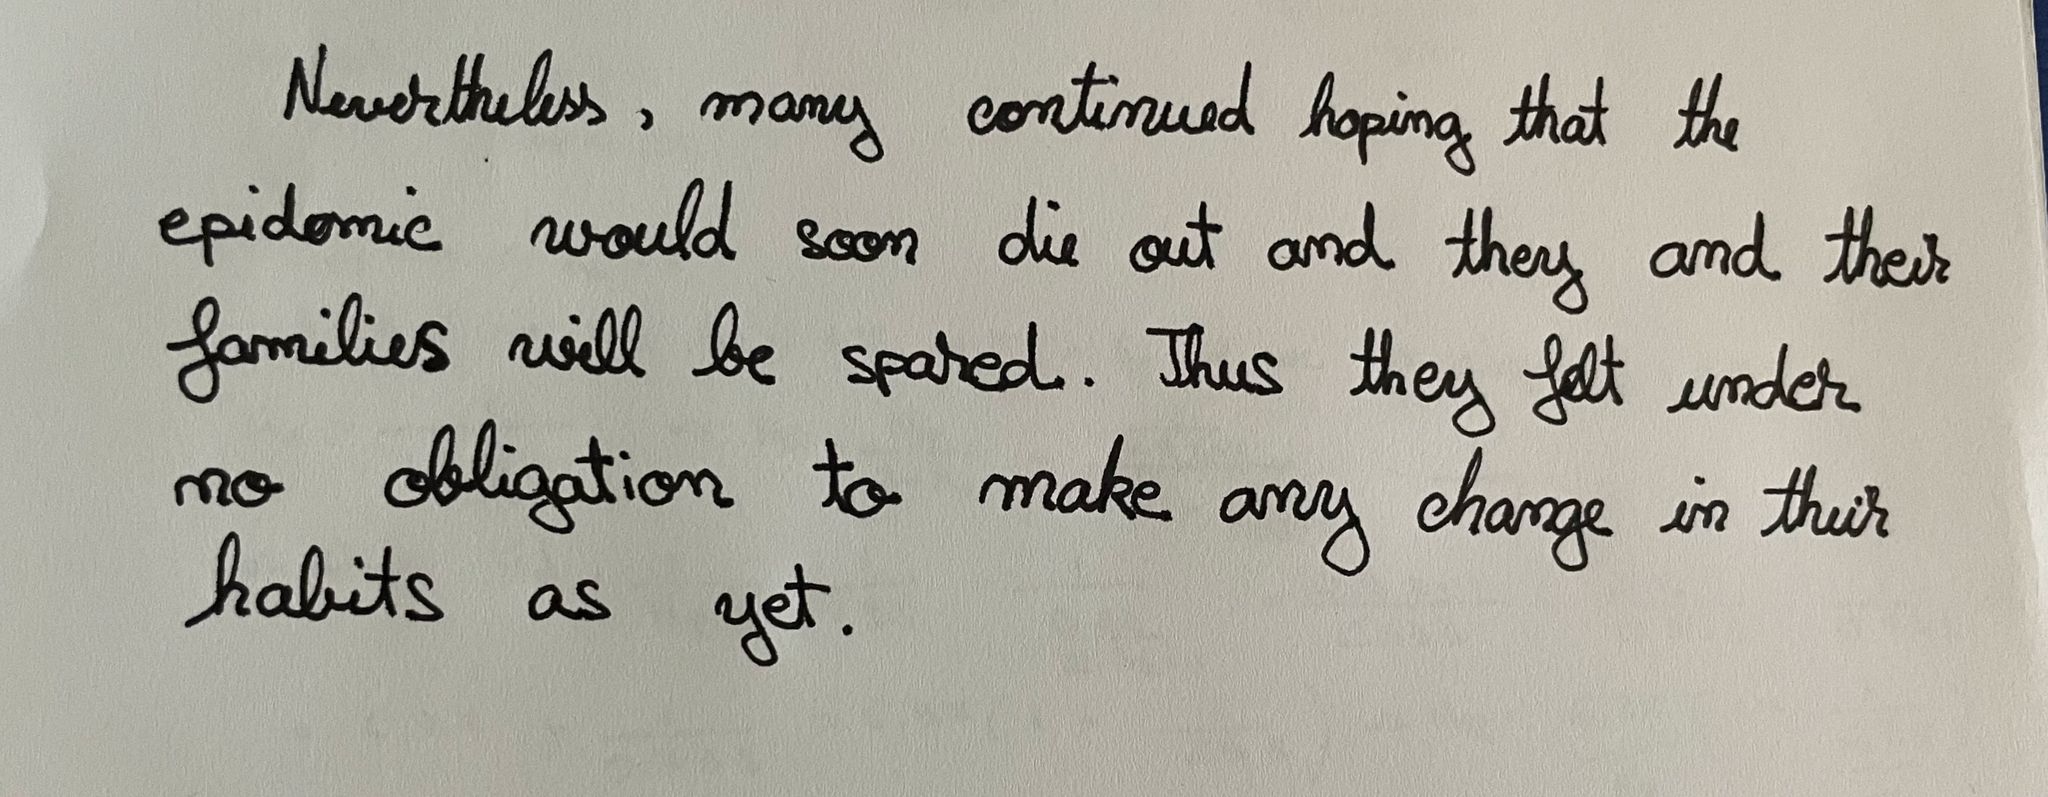 Nevertheless, many continued hoping that the
epidemic would soon die out and they and their
families will be spared. Thus they felt under
no obligation to make any change in their
habits as yet.